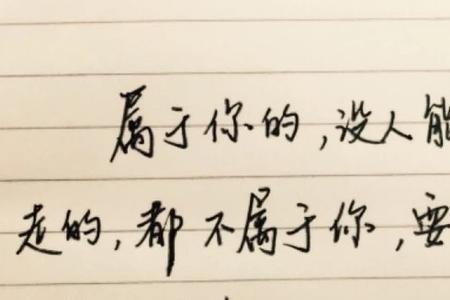 属于你的,没人能
走的,都不属于你,要